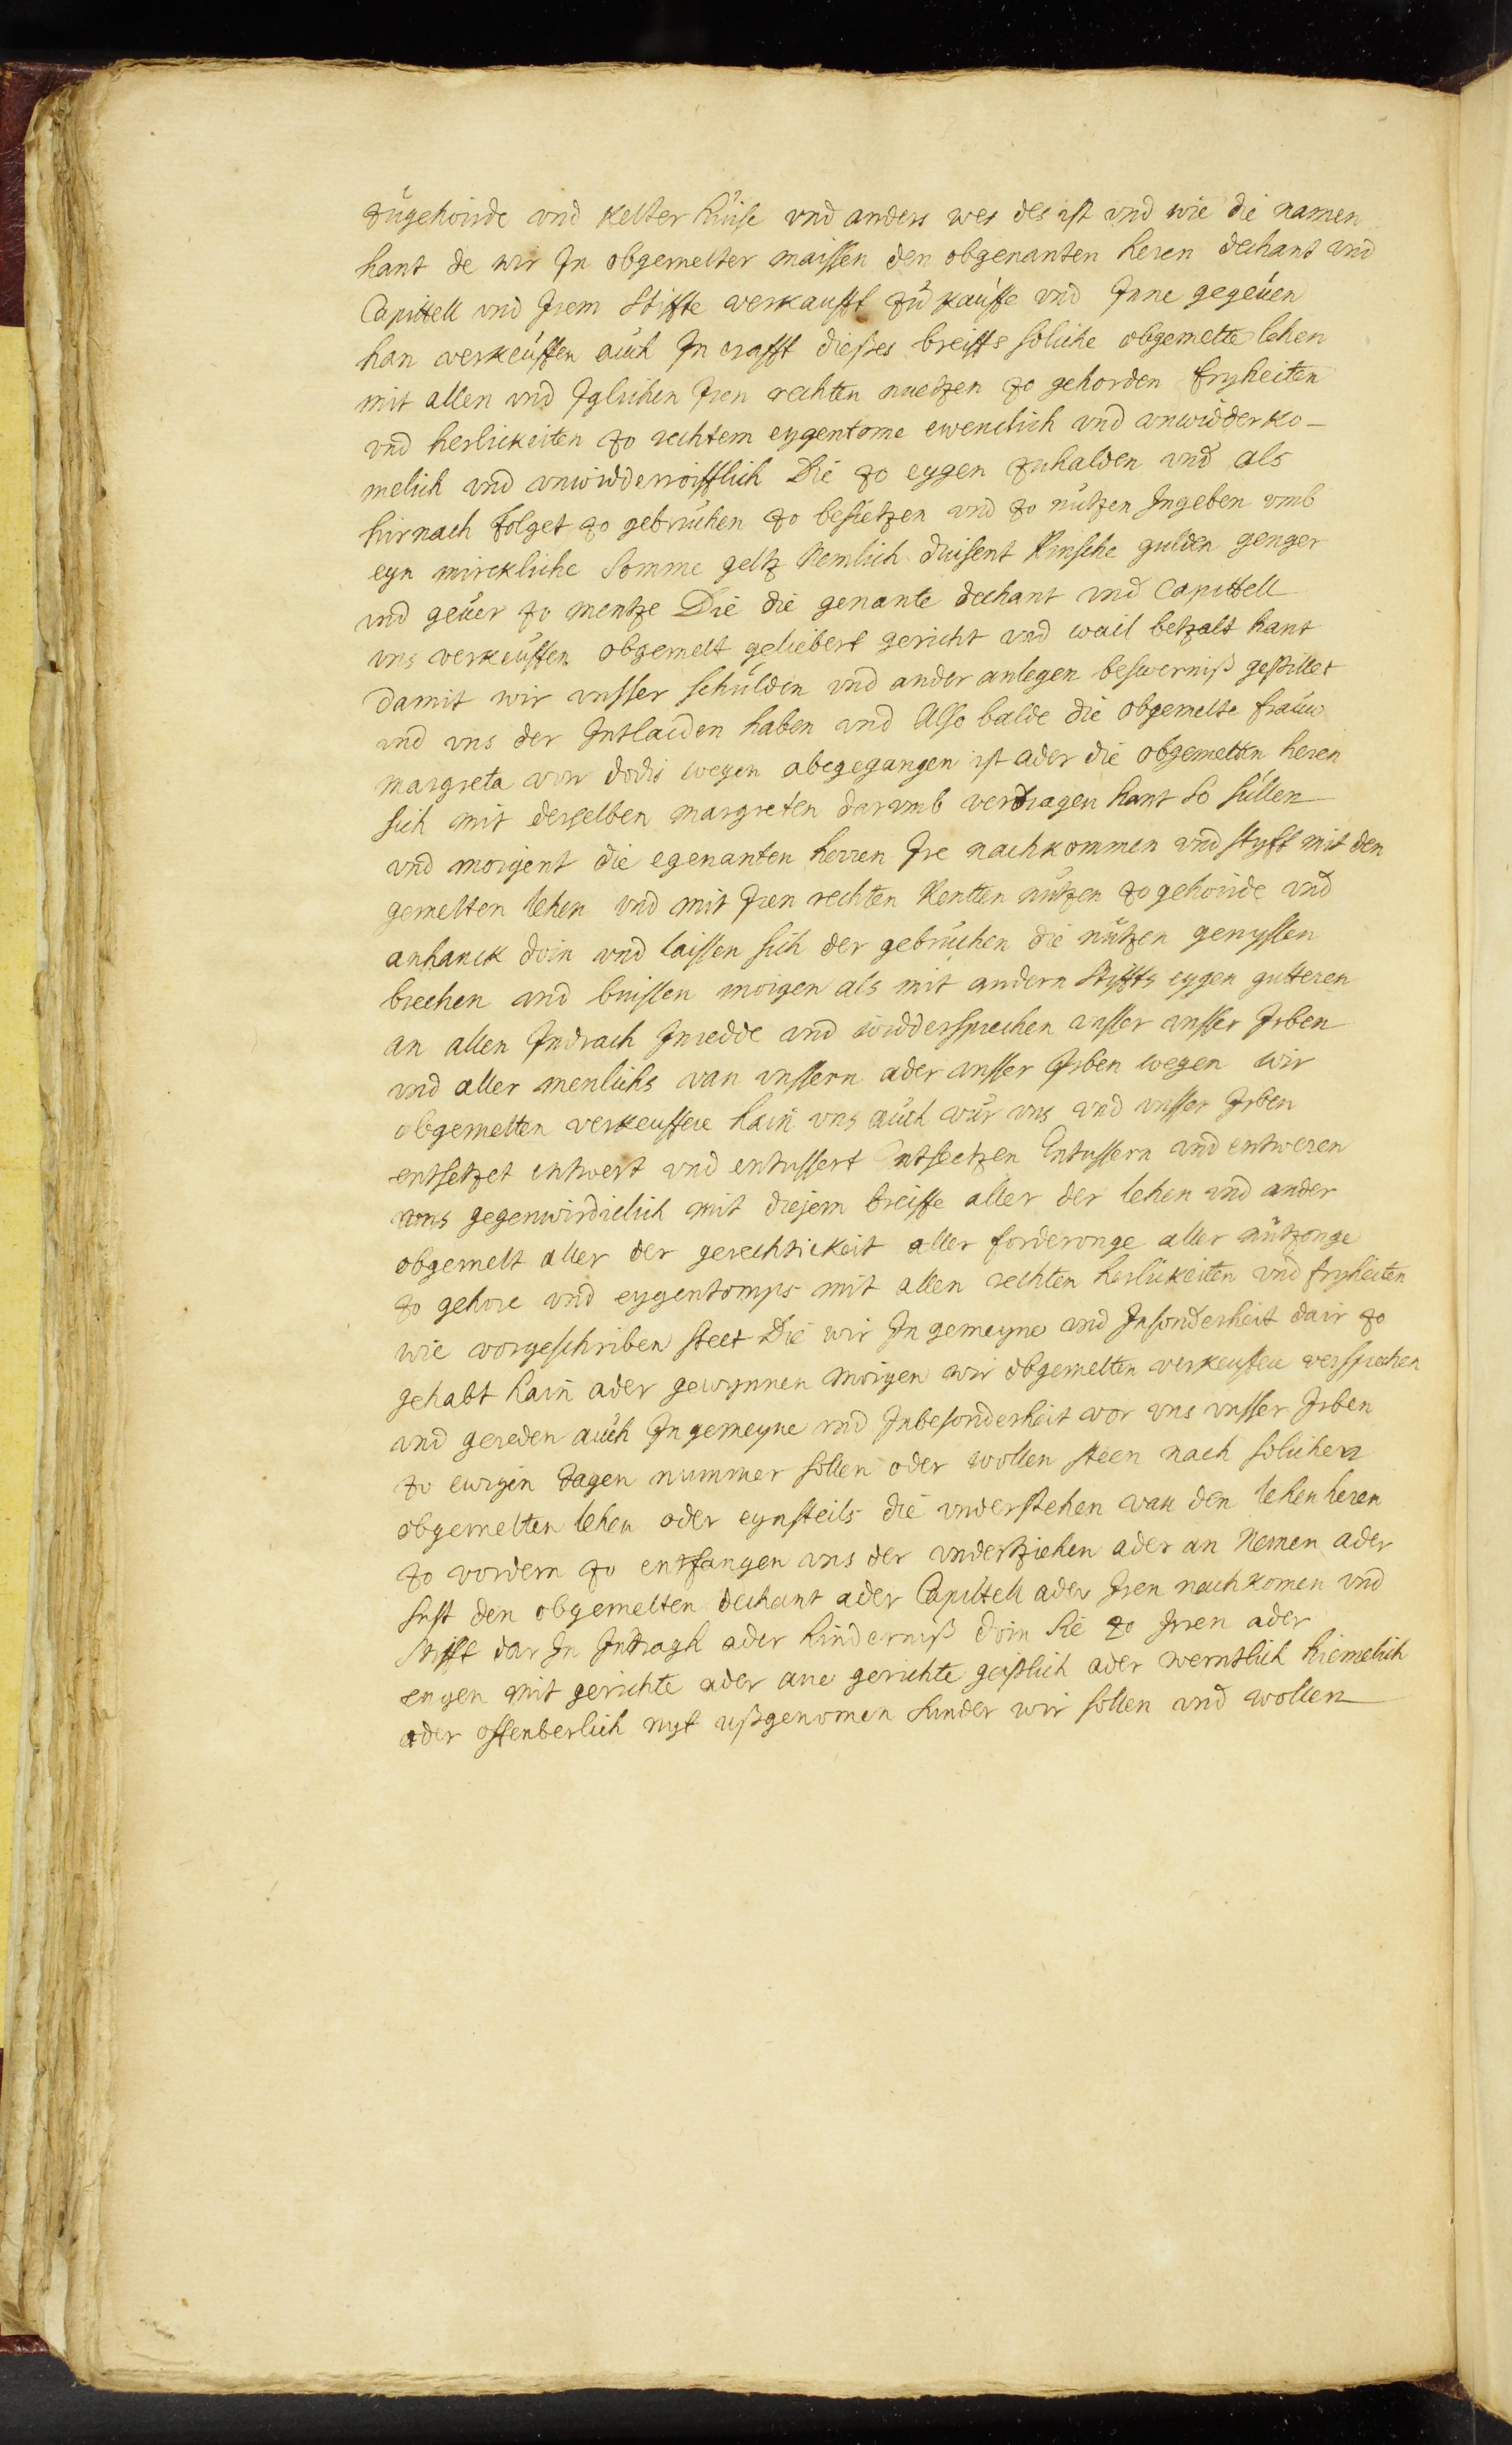 zugehoirde vnd Kelter húise vnd anders wes des ist vnd wie die namen
hant de wir In obgemelter maissen den obgenanten heren dechant vnd
Capittell vnd Irem Stiffte verkaufft zu kauffe vnd Inne gegeuen
han verkeuffen auch In crafft dießes breiffs soliche obgemelte lehen
mit allen vnd Iglichen Iren rechten nuetzen zo gehorden fryheiten
vnd herlickeiten zo rechtem eygentome ewenclich vnd vnwidderko-
melich vnd vnwidderroifflich Die zo eygen zuhalden vnd als
hirnach folget zo gebruchen zo besietzen vnd zo nutzen Ingeben vmb
eyn mircklliche Somme geltz Nemlich duisent Rinsche gulden genger
vnd geuer zo mentze Die die genante dechant vnd Capittell
vns verkeuffen obgemelt geliebert gericht vnd wail betzalt hant
damit wir vnsser schulden vnd ander anlegen beswerniß gestillet
vnd vns der Intlaiden haben vnd Also balde die obgemelte frauw
margreta von dodis wegen abegegangen ist ader die obgemelten heren
sich mit derselben margreten darvmb verdragen hant So sullen
vnd morgent die egenanten herren Ire nachkommen vnd styft mit den
gemelten lehen vnd mit Iren rechten Rentten nutzen zo gehoirde vnd
anhanck doin vnd laissen sich der gebruchen die nutzen genyssen
brechen vnd buissen moigen als mit andern Stiffts eygen gutteren
an allen Indrach Inredde vnd widdersprechen vnsser vnsser Irben
vnd aller menlichs van vnssern ader vnsser Irben wegen wir
obgemelten verkeuffere hain vns auch vur vns vnd vnsser Irben
entsetzet entwert vnd entussert Entsetzen Entussern vnd entweren
vons gegenwirdiclich mit diesem breiffe aller der lehen vnd ander
obgemelt aller der gerechtickeit aller forderonge aller nutzonge
zo gehore vnd eygentomps mit allen rechten herlickeiten vnd fryheiten
wie vorgeschriben steet Die wir In gemeyne vnd Insonderheit dair zo
gehabt hain ader gewynnen moigen wir obgemelten verkeuffere versprechen
vnd gereden auch In gemeyne vnd Inbesonderheit vor vns vnsser Irben
zo ewigin dagen nummer sollen oder wollen steen nach solichen
obgemelten lehen oder eynsteils die vnderstehen van den lehen heren
zo vordern zo entfangen vns der vndertziehen ader an Nemen ader
sust den obgemelten dechant ader Capittell ader Iren nachkomen vnd
Stifft dar In Intragh ader hinderniß doin Sie zo Irren ader
engen mit gerichte ader ane gerichte geistlich ader werntlich hiemelich
ader offenberlich nyt ußgenomen Sunder wir sollen vnd wollen